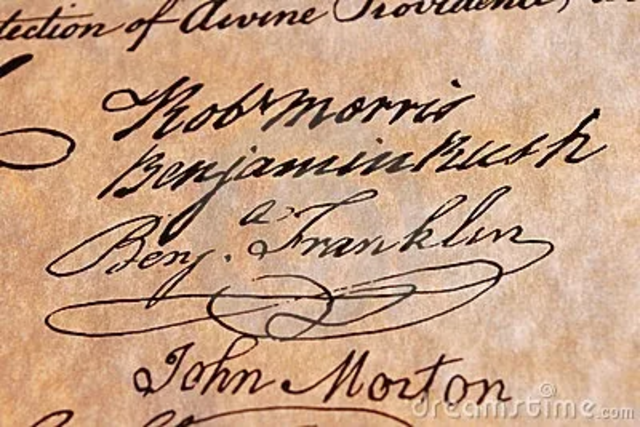 tection of divine Providence,
Robt Morris
Benjamin Rush
Benja. Franklin
John Morton
dreamstime.com